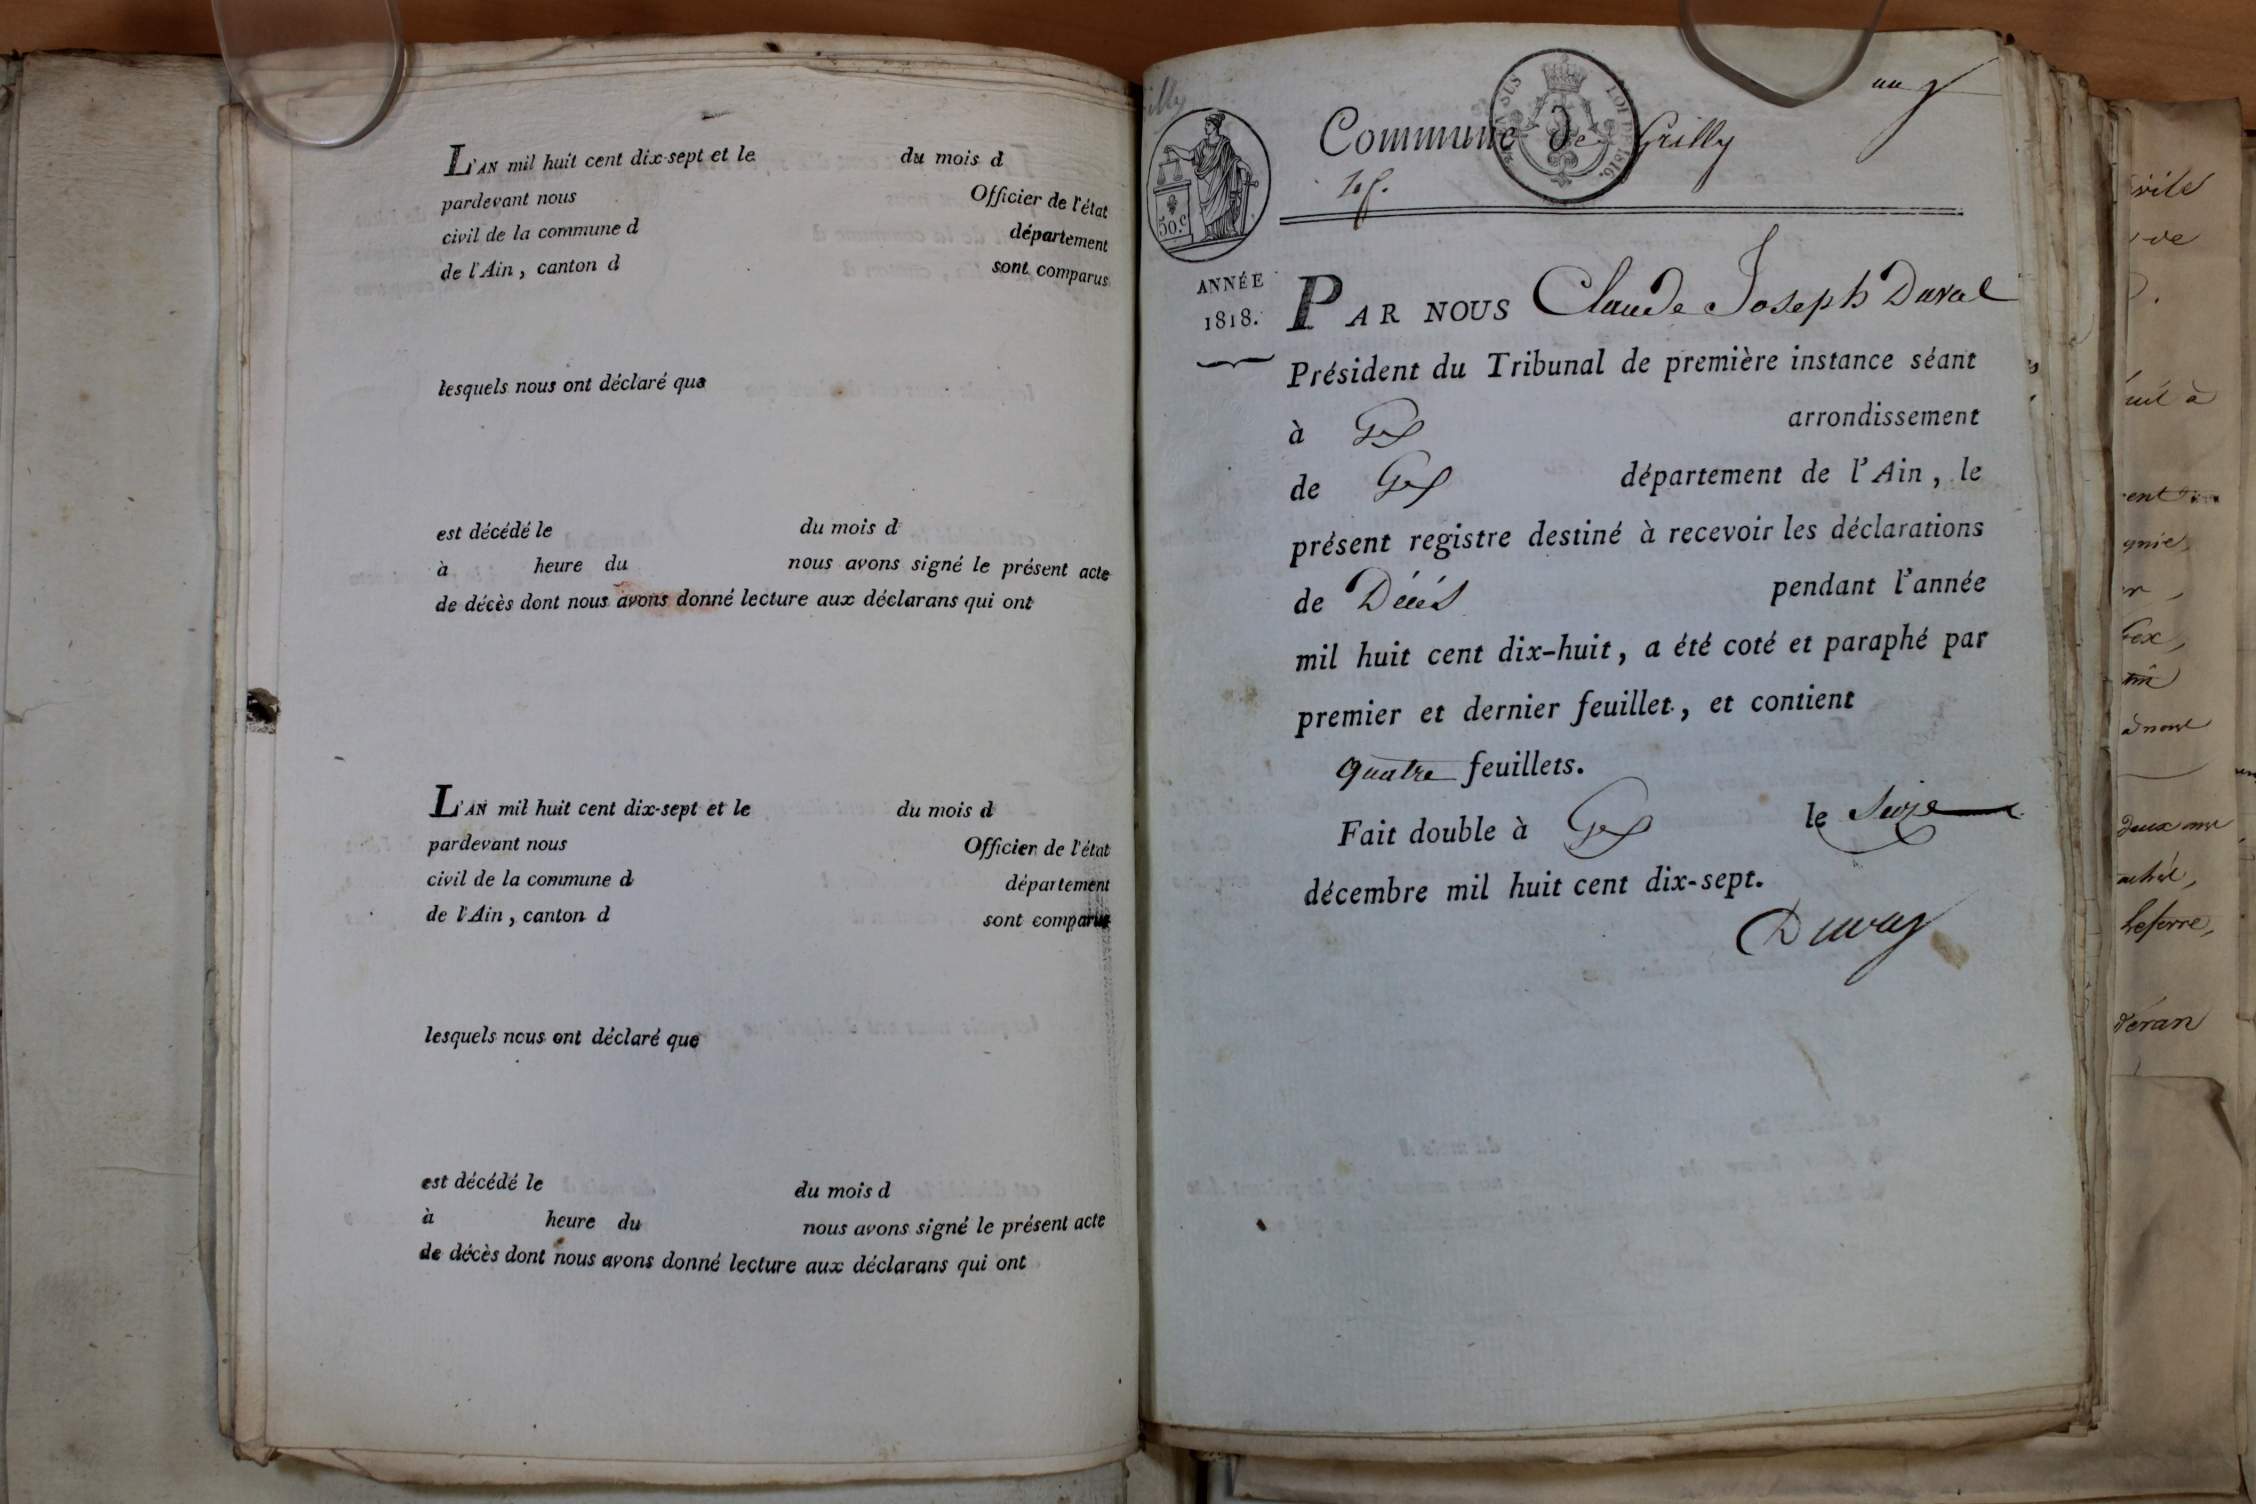 L'AN mil huit cent dix-sept et le du mois d
pardevant nous Officier de l'état
civil de la commune d département
de l'Ain, canton d sont comparus
lesquels nous ont déclaré que
est décédé le du mois d
à heure du nous avons signé le présent acte
de décès dont nous avons donné lecture aux déclarans qui ont
L'AN mil huit cent dix-sept et le du mois d
pardevant nous Officier de l'état
civil de la commune d département
de l'Ain, canton d sont comparus
lesquels nous ont déclaré que
est décédé le du mois d
à heure du nous avons signé le présent acte
de décès dont nous avons donné lecture aux déclarans qui ont
Commune de Grilly
50.c
LOI DE 1816.
ANNÉE
1818.
PAR NOUS Claude Joseph Duval
Président du Tribunal de première instance séant
à Gex arrondissement
de Gex département de l'Ain, le
présent registre destiné à recevoir les déclarations
de Décés pendant l'année
mil huit cent dix-huit, a été coté et paraphé par
premier et dernier feuillet, et contient
quatre feuillets.
Fait double à Gex le Seize
décembre mil huit cent dix-sept.
Duval